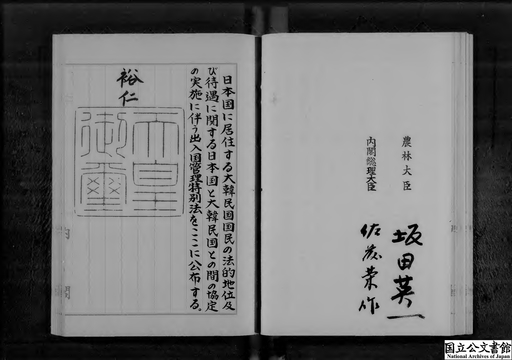 日本国に居住する大韓民国国民の法的地位及
び待遇に関する日本国と大韓民国との間の協定
の実施に伴う出入国管理特別法をここに公布する。
裕仁
天皇
御璽
農林大臣
坂田英一
内閣総理大臣
佐藤栄作
国立公文書館
National Archives of Japan